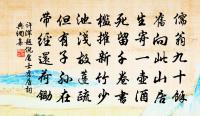 儒翁九十餘
舊向此山居
生寄一壺酒
死留千卷書
檻摧新竹少
池淺故蓮疏
但有子孫在
帶經還荷鋤
許渾題倪處士舊居詩詞
典網集